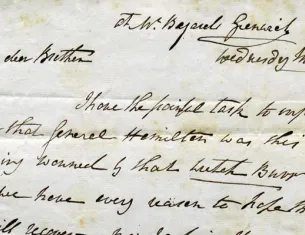 at Mr. Bayards Greenwich
Wednesday M
dear Brother
I have the painful task to inf
that General Hamilton was this
ing wouned by that wretch Burr
we have every reason to hope th
ill recover